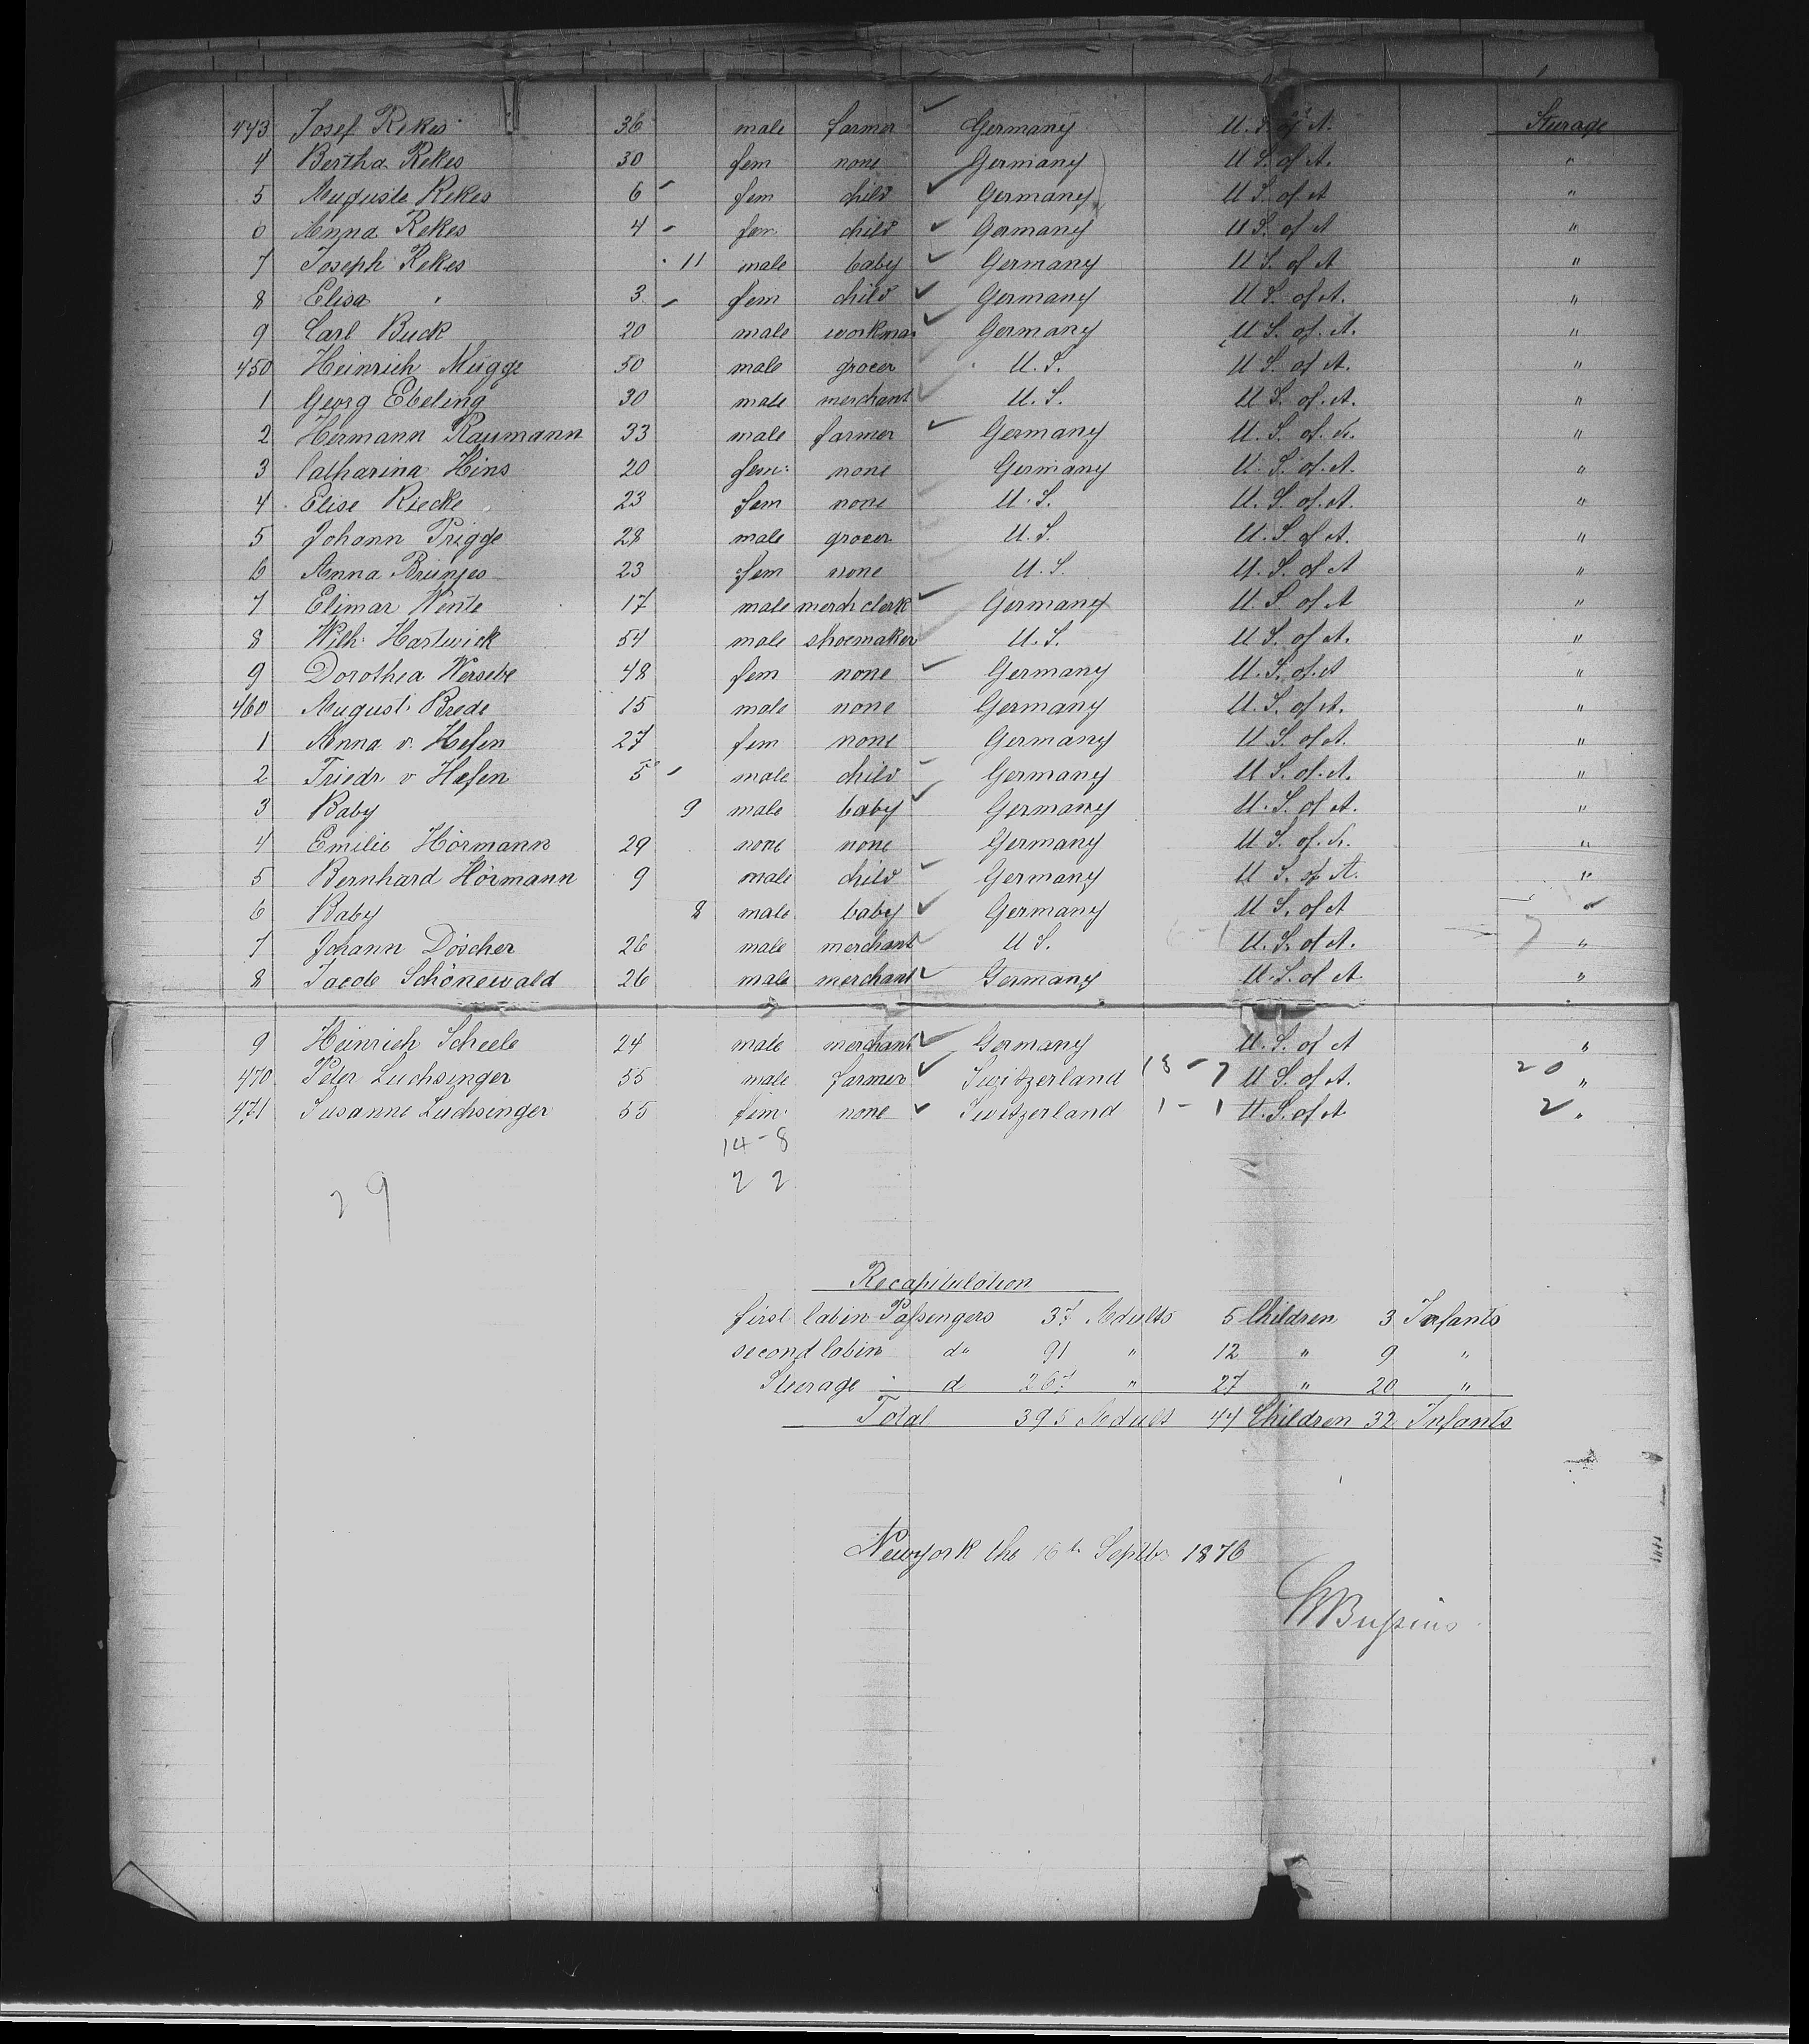 443 Josef Rekes 36 male farmer Germany U. S. of A. Sturage
4 Bertha Rekes 30 fem none Germany U S. of A. "
5 Auguste Rekes 6 fem child Germany U S. of A "
6 Anna Rekes 4 fem child Germany U S. of A "
7 Joseph Rekes 11 male baby Germany U S. of A "
8 Elisa " 3 fem child Germany U S. of A. "
9 Carl Buck 20 male workman Germany U S. of. A. "
450 Heinrich Mügge 50 male grocer U. S. U S. of A. "
1 Georg Ebeling 30 male merchant U. S. U S. of. A. "
2 Hermann Raumann 33 male farmer Germany U. S. of. A. "
3 Catharina Hins 20 fem: none Germany U. S. of. A. "
4 Elise Riecke 23 fem none U. S. U. S. of. A. "
5 Johann Prigge 28 male grocer U. S. U. S of A. "
6 Anna Brünjes 23 fem none U. S. U. S. of A "
7 Elimar Wente 17 male merch clerk Germany U. S. of A "
8 Wilh. Hartwick 54 male shoemaker U. S. U S. of A. "
9 Dorothea Wersebe 48 fem none Germany U. S. of A "
460 August Brede 15 male none Germany U. S. of A. "
1 Anna v. Hefen 27 fem none Germany U S. of A. "
2 Friedr v Hefen 5 male child Germany U S. of. A. "
3 Baby 9 male baby Germany U. S. of A. "
4 Emilie Hörmann 29 none none Germany U S. of. A. "
5 Bernhard Hörmann 9 male child Germany U S. of A. "
6 Baby 8 male baby Germany U S. of A "
7 Johann Döscher 26 male merchant U S. U. S. of A. 7 "
8 Jacob Schönewald 26 male merchant Germany U. S. of A "
9 Heinrich Scheele 24 male merchant Germany U. S. of A "
470 Peter Luchsinger 55 male farmer Switzerland 13 - 7 U S. of A. 20 "
471 Susanne Luchsinger 55 fem none Switzerland 1 - 1 U. S. of A 2 "
14 - 8
22
29
Recapitulation
first Cabin Passengers 37 Adults 5 Children 3 Infants
second Cabin do 91 " 12 " 9 "
Sturage d 267 " 27 " 20 "
Total 395 Adults 44 Children 32 Infants
Newyork the 16th Septbr 1876